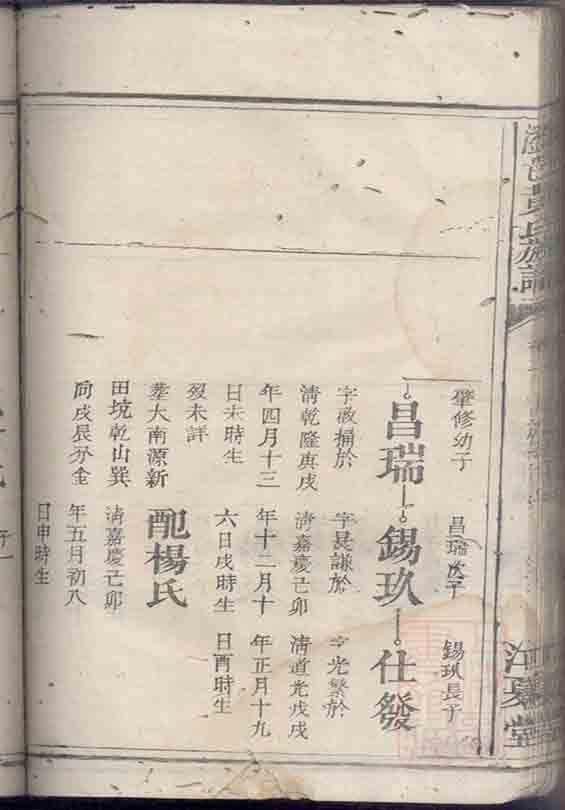 黃氏族譜
江夏堂
肇修幼子
昌瑞
字啟揚於
清乾隆庚戌
年四月十三
日未時生
歿未詳
葬大南源新
田坑乾山巽
向戌辰分金
昌瑞次子
錫玖
字長謙於
清嘉慶己卯
年十二月十
六日戌時生
配楊氏
清嘉慶己卯
年五月初八
日申時生
錫玖長子
仕發
字光繁於
清道光戊戌
年正月十九
日酉時生